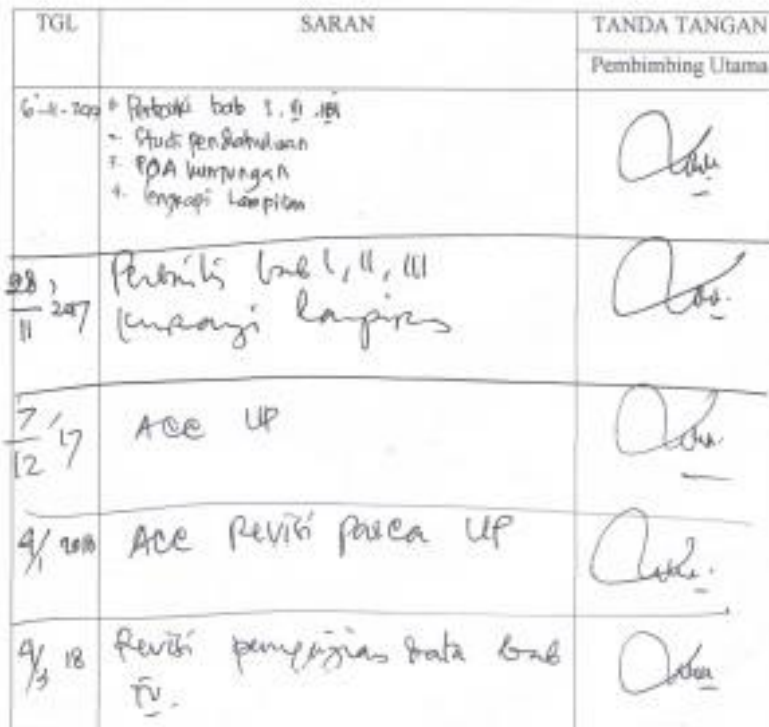 TGL SARAN TANDA TANGAN
Pembimbing Utama
Perbaiki bab I, II, III
- Studi pendahuluan
POA kunjungan
4. lengkapi Lampiran
28/11 2017 Perbaiki bab I, II, III
lampiran
7/12 17 ACC UP
4/1 2018 ACC Revisi pasca UP
18 Revisi penyajian data bab
IV.